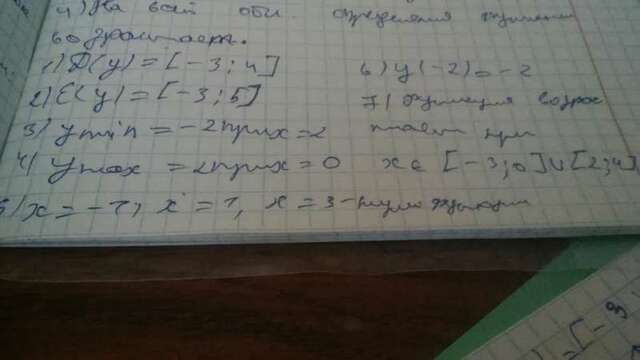 4) На всей обл. определения функция
возрастает.
1) D(y) = [-3; 4]
2) E(y) = [-3; 5]
3) y min = -2 при x = 2
4) y max = 2 при x = 0
5) x = -1, x = 1, x = 3 - нули функции
6) y(-2) = -2
7) Функция возрас
тает при
x ∈ [-3; 0] ∪ [2; 4]